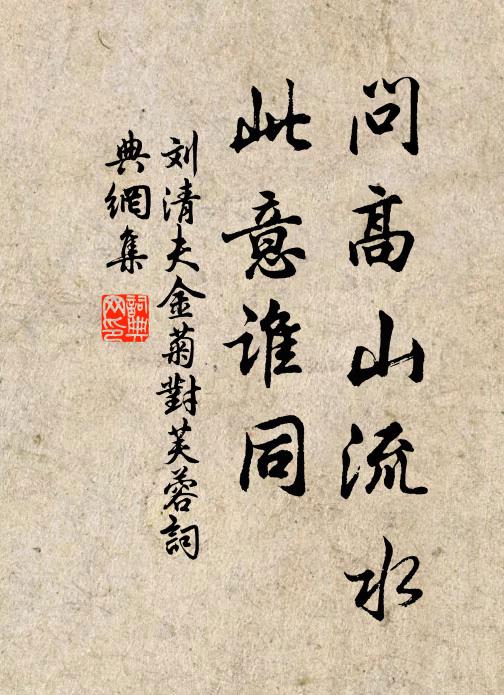 问高山流水
此意谁同
刘清夫金菊對芙蓉詞
典網集
詞典網印